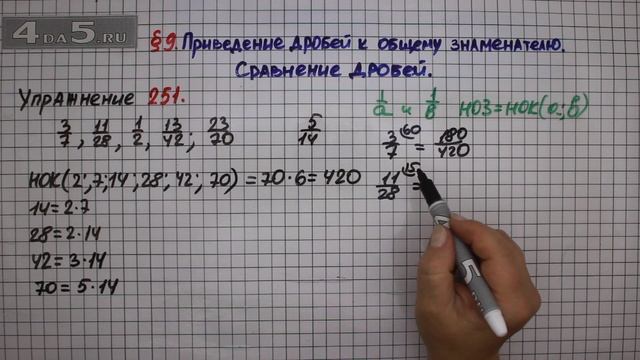 4DA5.RU
§9. Приведение дробей к общему знаменателю.
Сравнение дробей.
Упражнение 251.
1/a и 1/b НОЗ=НОК(a;b)
3/7, 11/28, 1/2, 13/42; 23/70 5/14
3/7 (60 = 180/420
НОК(2; 7; 14; 28; 42; 70) = 70·6 = 420
11/28 (15 =
14 = 2·7
28 = 2·14
42 = 3·14
70 = 5·14